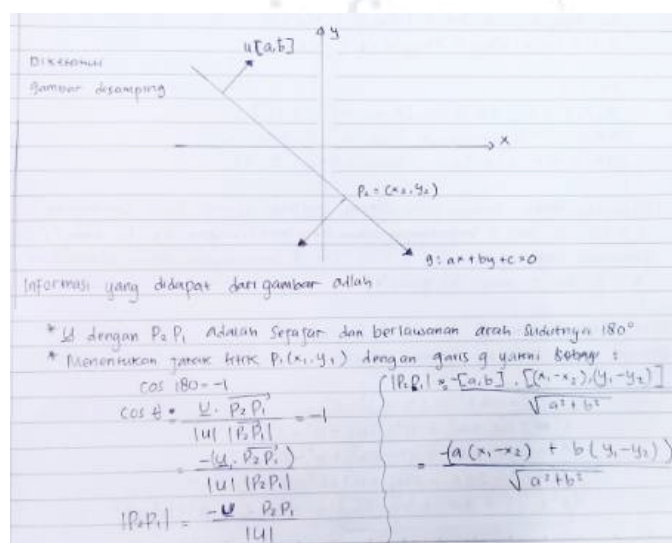 y
u[a,b]
Diketahui
gambar disamping
x
P₂ = (x₂, y₂)
g: ax + by + c = 0
Informasi yang didapat dari gambar adlah
* u dengan P₂P₁ adalah sejajar dan berlawanan arah sudutnya 180°
* Menentukan jarak titik P₁(x₁, y₁) dengan garis g yakni sebagai :
cos 180 = -1
cos θ = u . P₂P₁ / |u| |P₂P₁| = -1
= -(u . P₂P₁) / |u| |P₂P₁|
|P₂P₁| = -u P₂P₁ / |u|
|P₂P₁| = -[a,b] . [(x₁-x₂),(y₁-y₂)] / √a²+b²
= -(a(x₁-x₂) + b(y₁-y₂)) / √a²+b²